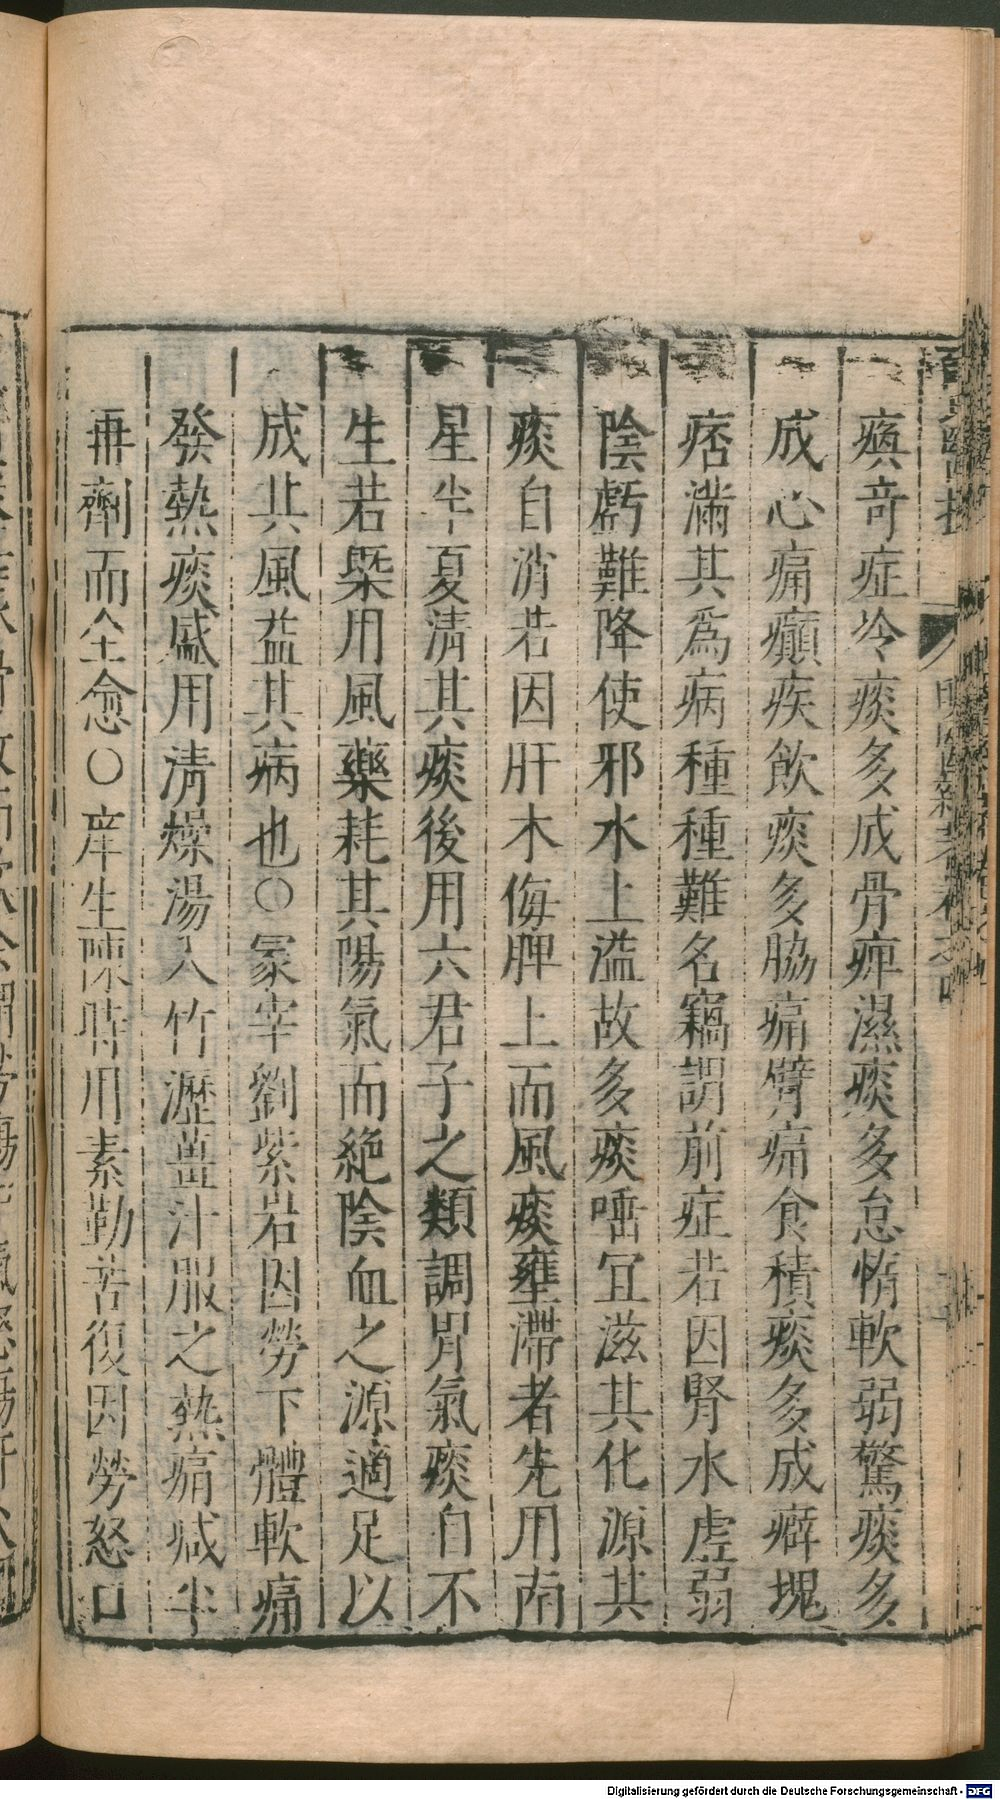 瘼竒症冷痰多成骨痺濕痰多怠惰軟弱驚痰多
成心痛癲疾飲痰多脇痛臂痛食積痰多成癖塊
痞滿其爲病種種難名竊謂前症若因腎水虛弱
陰虧難降使邪水上溢故多痰唾宜滋其化源其
痰自消若因肝木侮脾土而風痰壅滯者先用南
星半夏清其痰後用六君子之類調胃氣痰自不
生若槩用風藥耗其陽氣而絶陰血之源適足以
成其風益其病也〇冢宰劉紫岩因勞下體軟痛
發熱痰盛用清燥湯入竹瀝薑汁服之熱痛減半
再劑而全愈〇庠生陳時用素勤苦復因勞怒口
Digitalisierung gefördert durch die Deutsche Forschungsgemeinschaft - DFG